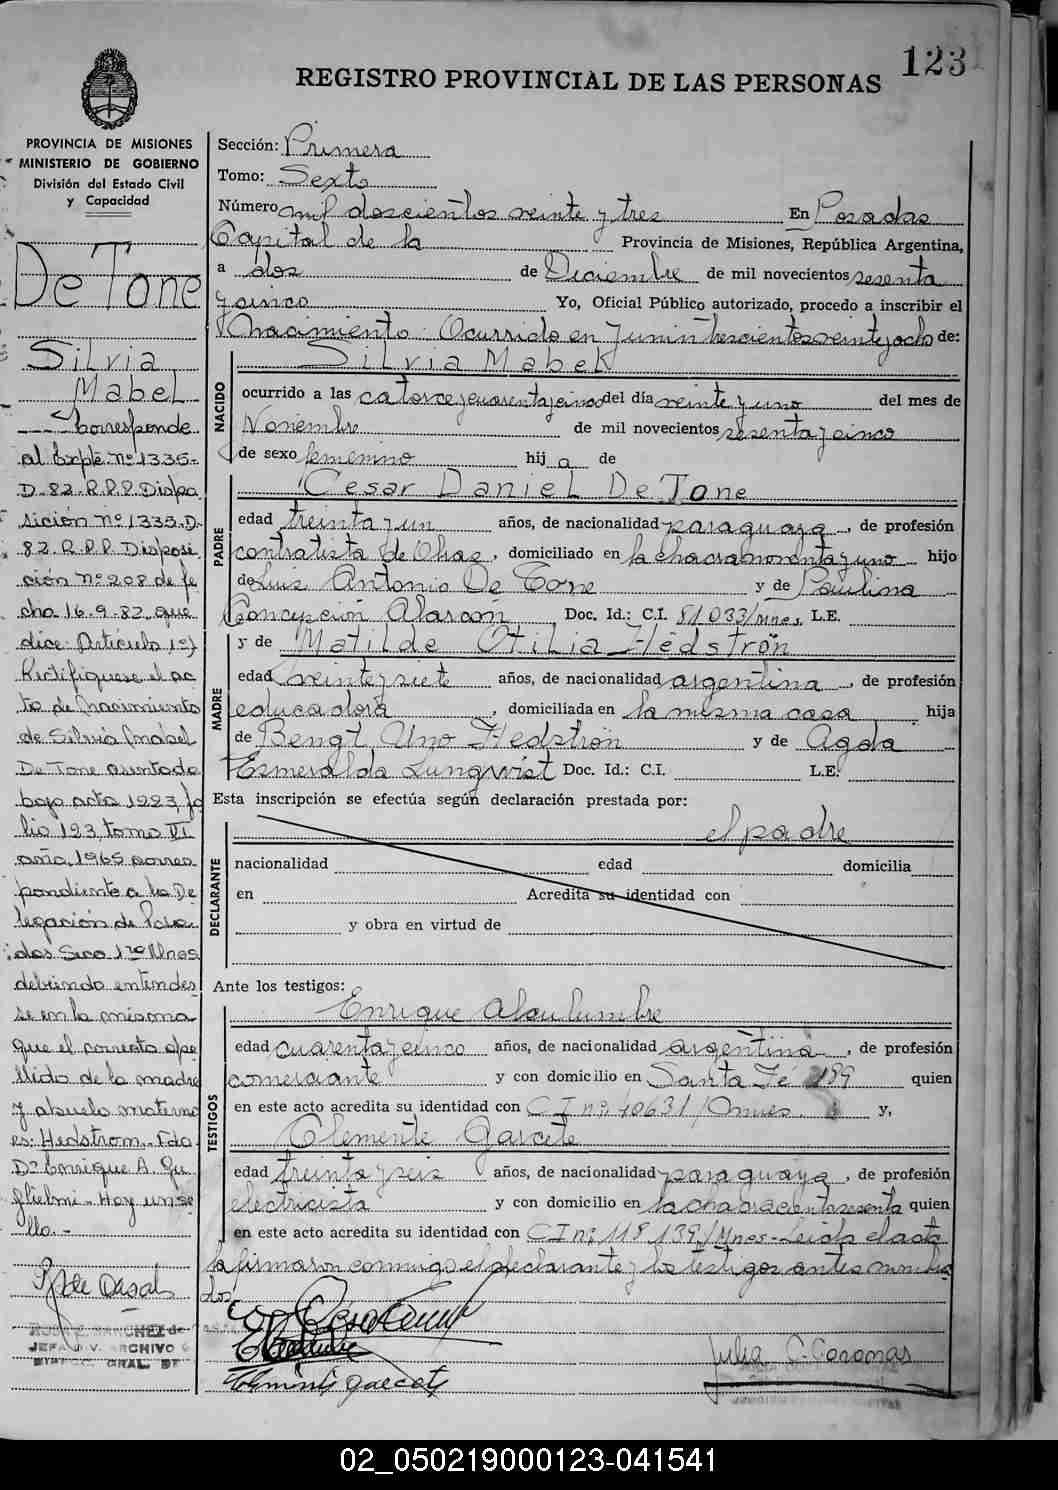 123
REGISTRO PROVINCIAL DE LAS PERSONAS
PROVINCIA DE MISIONES
MINISTERIO DE GOBIERNO
División del Estado Civil
y Capacidad
De Tone
Silvia
Mabel
Corresponde
al Expte. nº 1335-
D-82-R.P.P. Dispo
sición Nº 1335-D-
82-R.P.P. Disposi
ción Nº 208 de fe
cha 16-9-82, que
dice: Artículo 1º)
Rectifíquese el ac
ta de Nacimiento
de Silvia Mabel
De Tone asentada
bajo acta 1223, fo
lio 123, tomo VI
año, 1965 corres
pondiente a la De
legación de Posa
das Secc 1ra Mnes
debiendo entender
se en la misma
que el correcto ape
llido de la madre
y abuelo materno
es: Hedstrom. Fdo
Dr. Enrique A. Gu
glielmi - Hay un se
llo.-
JEFA DIV. ARCHIVO
Sección: Primera
Tomo: Sexto
Número mil doscientos veinte y tres En Posadas
Capital de la Provincia de Misiones, República Argentina,
a dos de Diciembre de mil novecientos sesenta
y cinco Yo, Oficial Público autorizado, procedo a inscribir el
Nacimiento: Ocurrido en Junin trescientos veinte y ocho de:
NACIDO
Silvia Mabel
ocurrido a las catorce y cuarenta y cinco del día veinte y uno del mes de
Noviembre de mil novecientos sesenta y cinco
de sexo femenino hij a de
PADRE
Cesar Daniel De Tone
edad treinta y un años, de nacionalidad paraguaya, de profesión
contratista de Obras, domiciliado en la chacra noventa y uno hijo
de Luis Antonio De Tone y de Paulina
Concepción Alarcon, Doc. Id.: C.I. 81.033/mnes. L.E.
MADRE
y de Matilde Otilia Hedströn
edad veinte y siete años, de nacionalidad argentina, de profesión
educadora, domiciliada en la misma casa hija
de Bengt Uno Hedströn y de Agda
Esmeralda Lungvist Doc. Id.: C.I. L.E.
Esta inscripción se efectúa según declaración prestada por:
DECLARANTE
el padre
nacionalidad edad domicilia
en Acredita su identidad con
y obra en virtud de
Ante los testigos:
TESTIGOS
Enrique
edad cuarenta y cinco años, de nacionalidad argentina, de profesión
comerciante y con domicilio en Santa Fé 189 quien
en este acto acredita su identidad con C I nº 40631/Mnes. y,
Clemente Garcete
edad treinta y seis años, de nacionalidad paraguaya, de profesión
electricista y con domicilio en la chacra ciento sesenta quien
en este acto acredita su identidad con C I nº 118.139/Mnes- Leida el acta
la firmaron conmigo el declarante y los testigos antes nombra
dos
Julia C. Coronas
02_050219000123-041541